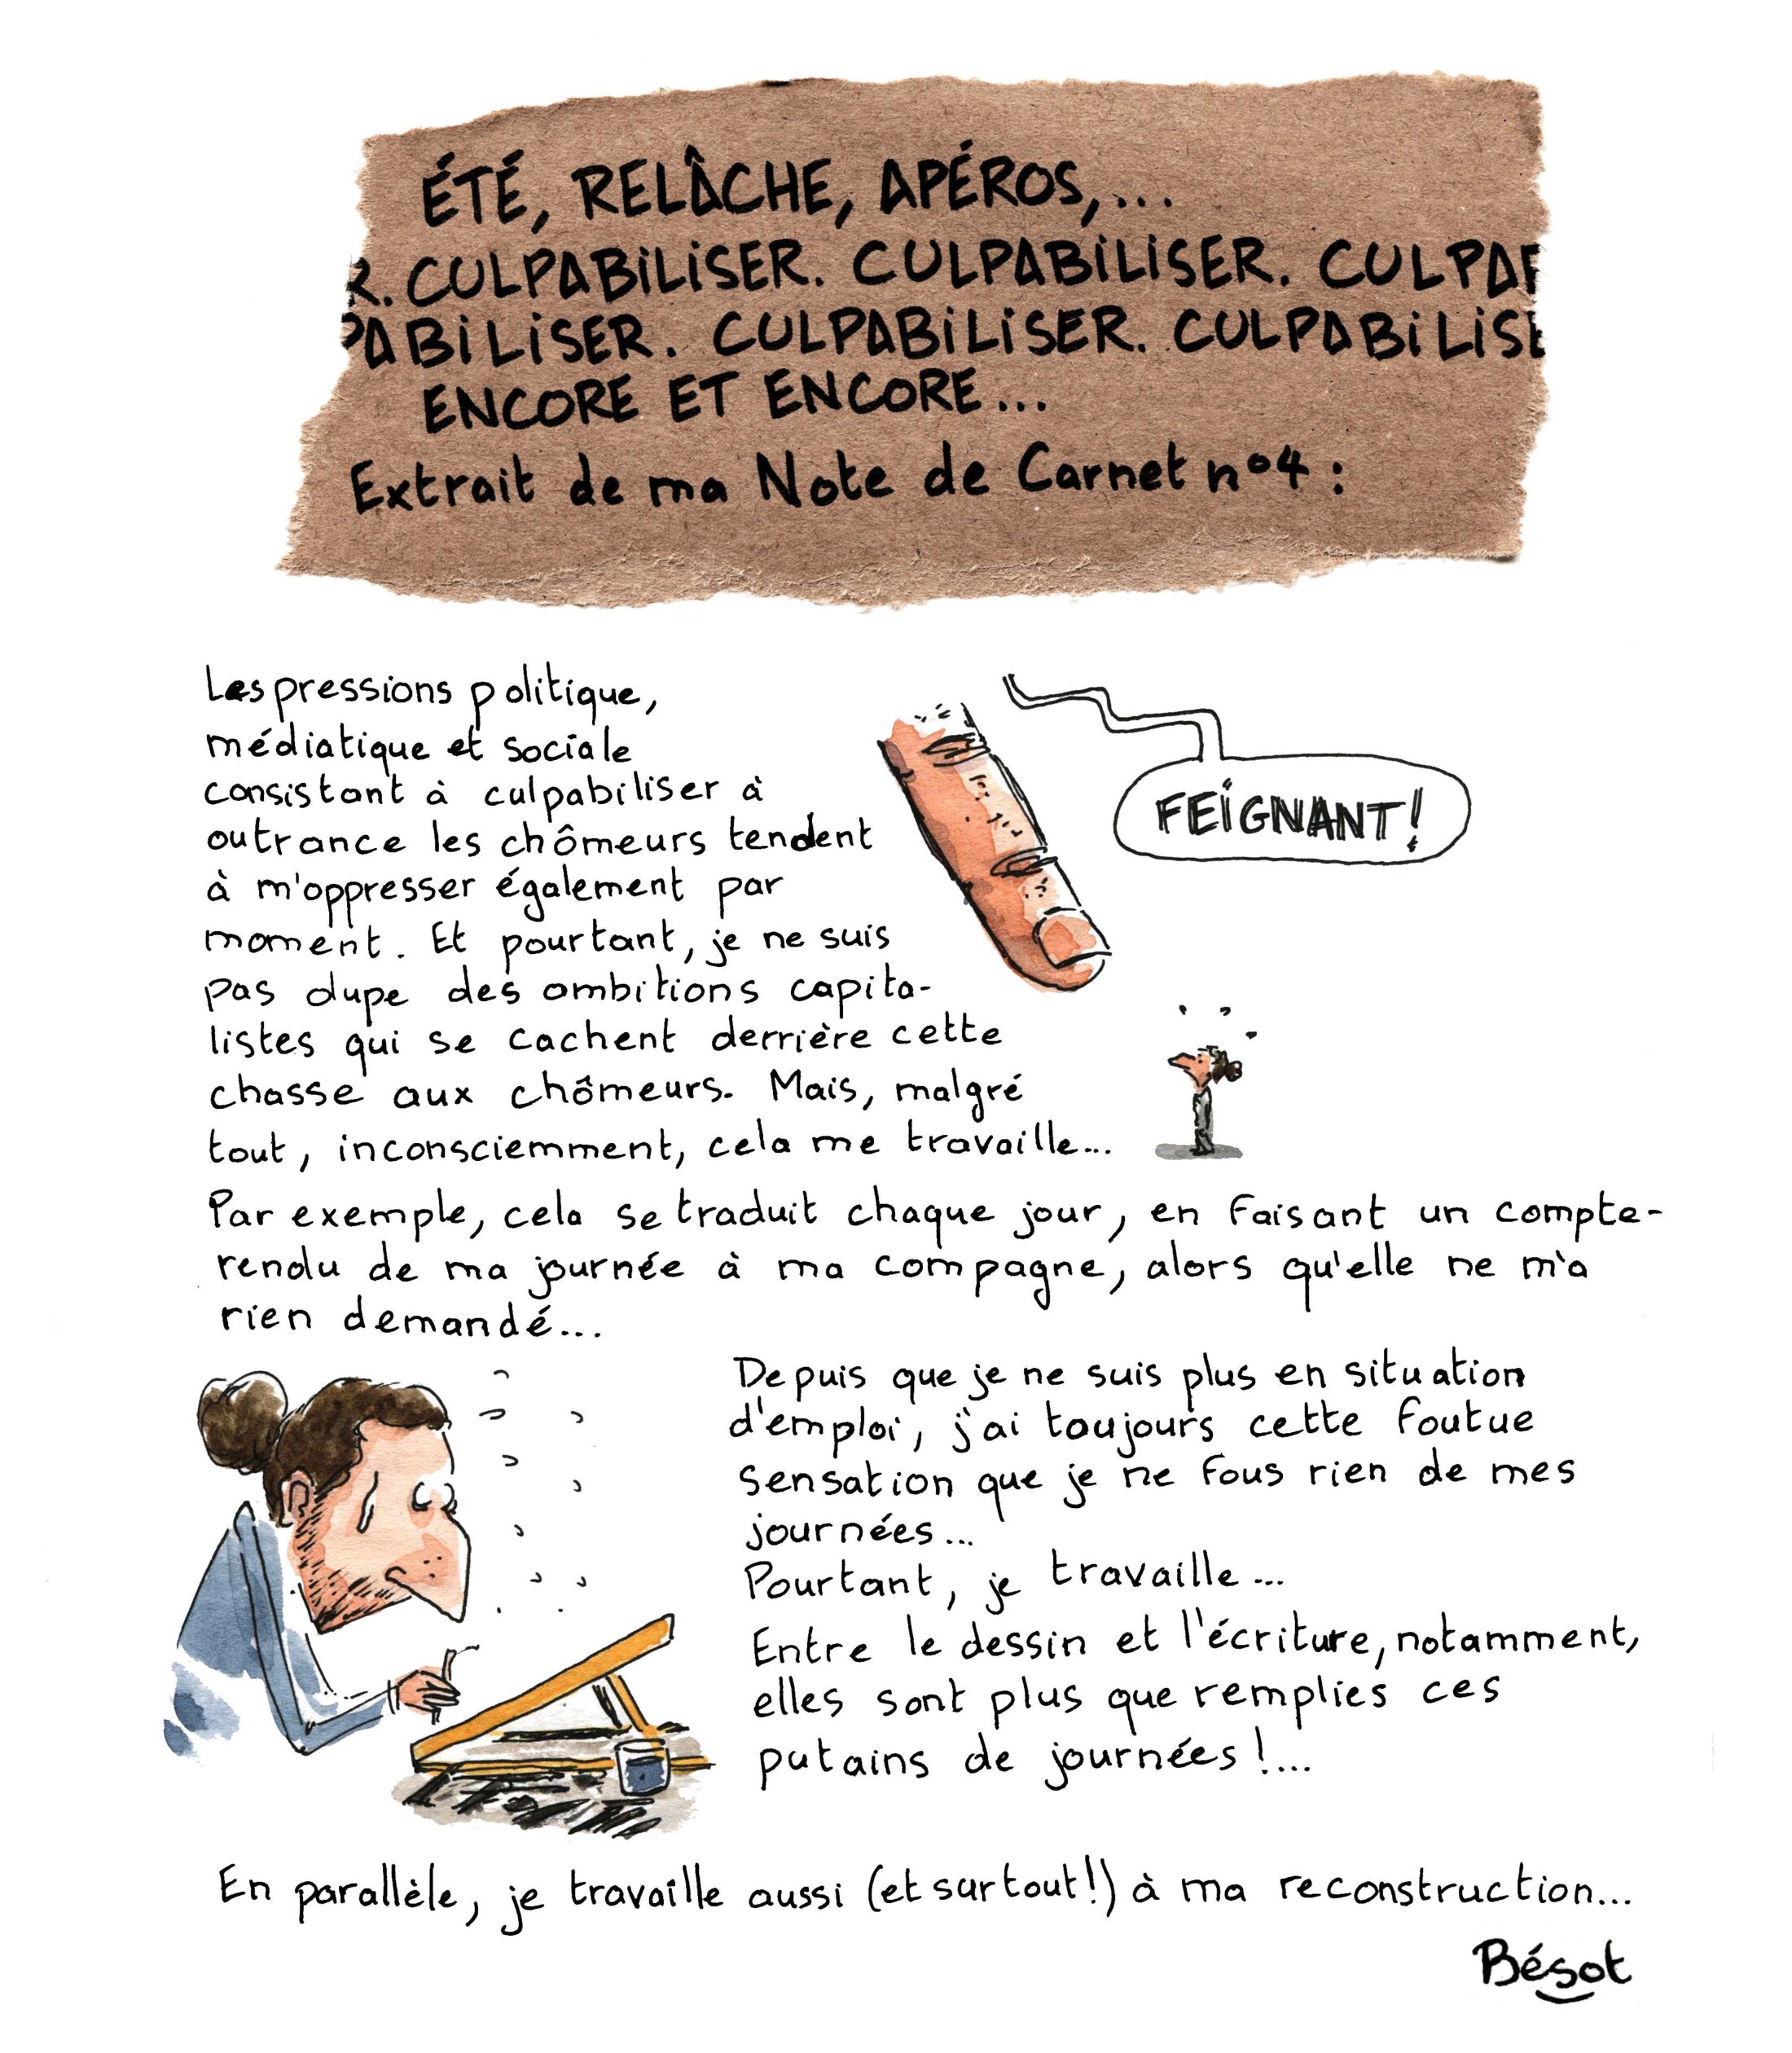 ÉTÉ, RELÂCHE, APÉROS,...
R. CULPABILISER. CULPABILISER. CULPAB
PABILISER. CULPABILISER. CULPABILISE
ENCORE ET ENCORE...
Extrait de ma Note de Carnet n°4 :
Les pressions politique,
médiatique et sociale
consistant à culpabiliser à
outrance les chômeurs tendent
à m'oppresser également par
moment. Et pourtant, je ne suis
pas dupe des ambitions capita-
listes qui se cachent derrière cette
chasse aux chômeurs. Mais, malgré
tout, inconsciemment, cela me travaille...
FEIGNANT!
Par exemple, cela se traduit chaque jour, en faisant un compte-
rendu de ma journée à ma compagne, alors qu'elle ne m'a
rien demandé...
Depuis que je ne suis plus en situation
d'emploi, j'ai toujours cette foutue
sensation que je ne fous rien de mes
journées...
Pourtant, je travaille...
Entre le dessin et l'écriture, notamment,
elles sont plus que remplies ces
putains de journées !...
En parallèle, je travaille aussi (et surtout!) à ma reconstruction...
Bésot